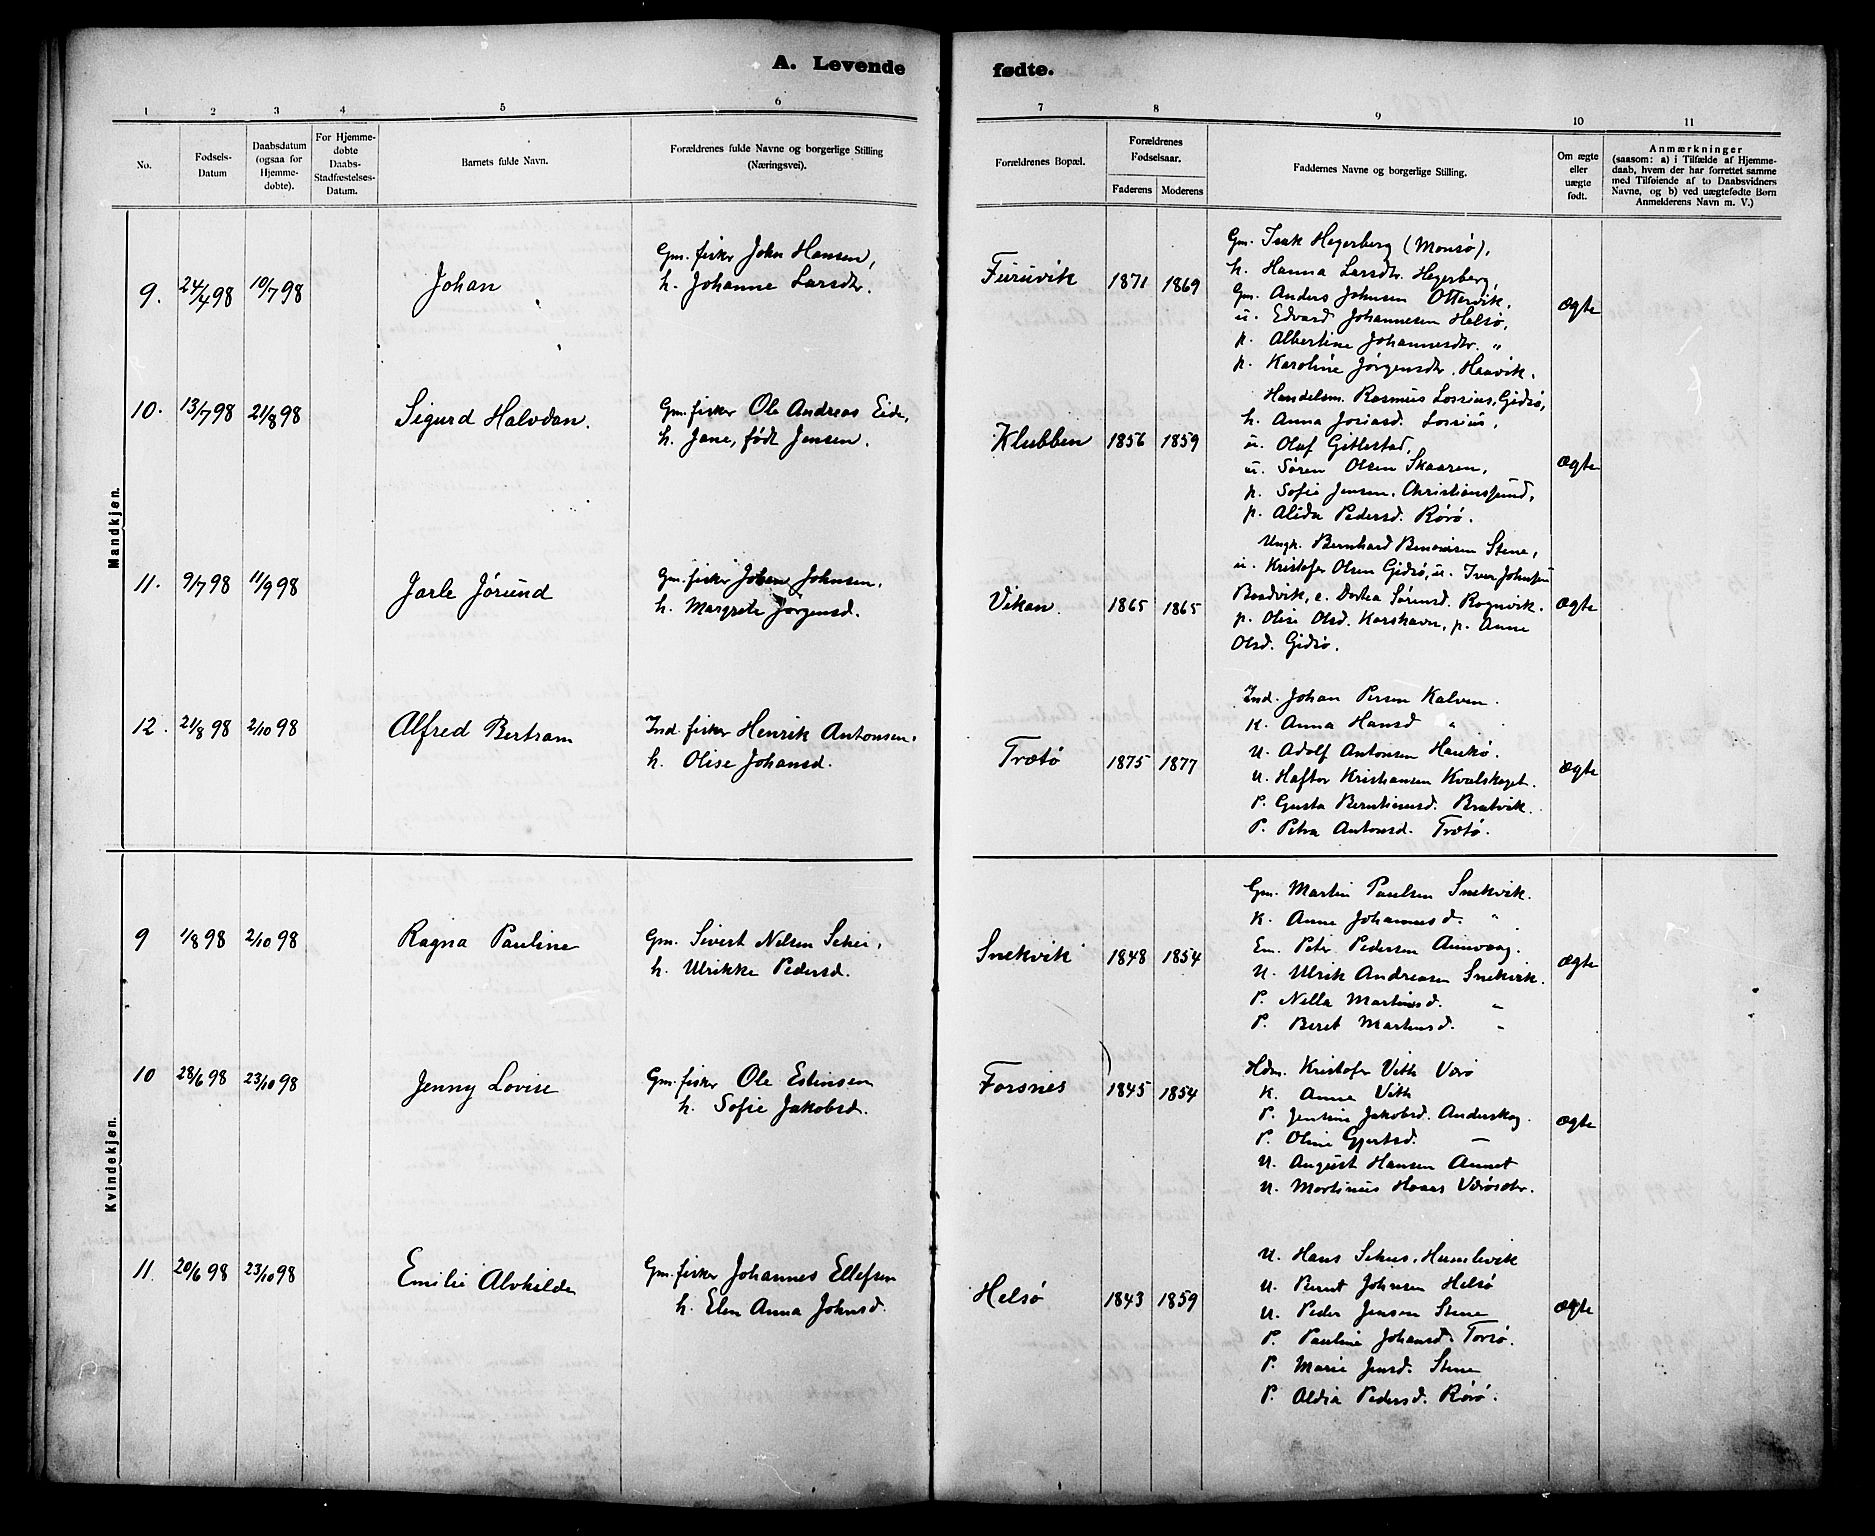 A. Levende fødte.
1 2 3 4 5 6 7 8 9 10 11
No.
Fødsels-
Datum
Daabsdatum
(ogsaa for
Hjemme-
døbte).
For Hjemme-
døbte
Daabs-
Stadfæstelses-
Datum.
Barnets fulde Navn.
Forældrenes fulde Navne og borgerlige Stilling
(Næringsvei).
Forældrenes Bopæl.
Forældrenes
Fødselsaar.
Faderens Moderens
Faddernes Navne og borgerlige Stilling.
Om ægte
eller
uægte
født.
Anmærkninger
(saasom: a) i Tilfælde af Hjemme-
daab, hvem der har forrettet samme
med Tilføiende af to Daabsvidners
Navne, og b) ved uægtefødte Børn
Anmelderens Navn m. V.)
Mandkjen.
9. 24/4 98 10/7 98 Johan
Gm. fisker John Hansen,
h. Johanne Larsdtr.
Furuvik 1871 1869
Gm. Isak Hegerberg (Monsø),
h. Hanna Larsdtr. Hegerberg,
Gm. Anders Johnsen Ottervik,
u. Edvard Johannesen Helsø,
p. Albertine Johannesdtr. "
p. Karoline Jørgensdtr. Haavik.
Ægte
10. 13/7 98 21/8 98 Sigurd Halvdan.
Gm. fisker Ole Andreas Eide,
h. Jane, født Jensen.
Klubben 1856 1859
Handelsm. Rasmus Lossius, Gjdsø,
h. Anna Josiasd. Lossius,
u. Olaf Gittlestad,
u. Søren Olsen Skaaren,
p. Sofie Jensen, Christianssund,
p. Alida Pedersd. Rørø.
Ægte
11. 9/7 98 11/9 98 Jarle Jørund
Gm. fisker Johan Johnsen,
h. Margrete Jørgensd.
Vikan. 1865 1865
Ungk. Bernhard Stene,
u. Kristofer Olsen Gjdsø, u. Iver Johnsen
e. Dortea Sørensd. Rognvik.
p. Olise Olsd. Korshavn, p. Anne
Olsd. Gjdsø.
Ægte
12. 21/8 98 2/10 98 Alfred Bertram
Ind. fisker Henrik Antonsen,
h. Olise Johansd.
Trætø 1875 1877
Ind. Johan Persen Kalven.
K. Anna Hansd "
U. Adolf Antonsen Haukø.
U. Haftor Kristiansen Kvalskaget.
P. Gusta Berntinusd. Bratvik.
P. Petra Antonsd. Trætø.
Ægte
Kvindekjen.
9 1/8 98 2/10 98 Ragna Pauline
Gm. Sivert Nilsen Schei,
h. Ulrikke Pedersd.
Snekvik 1848 1854
Gm. Martin Paulsen Snekvik.
K. Anne Johannesd. "
Em. Peter Pedersen Aunvaag.
U. Ulrik Andreasen Snekvik.
P. Nella Martinusd. "
P. Beret Martinusd. "
Ægte
10 28/6 98 23/10 98 Jenny Lovise
Gm. fisker Ole Estensen
h. Sofie Jakobsd.
Forsnes 1845 1854
Hdm. Kristofer Vith Værø
K. Anne Vith
P. Jensine Jakobsd. Anderskog.
P. Oline Gjertsd. —
U. August Hansen Aunet
U. Martinus Haas Værøsetr.
Ægte
11. 20/6 98 23/10 98 Emilie Alvhilde
Gm. fisker Johannes Ellefsen
h. Elen Anna Johnsd.
Helsø 1843 1859
U. Hans Humlevik
U. Bernt Johnsen Helsø
U. Peder Jensen Stene
P. Pauline Johansd. Torsø.
P. Marie Jensd. Stene
P. Aldia Pedersd. Rørø.
Ægte